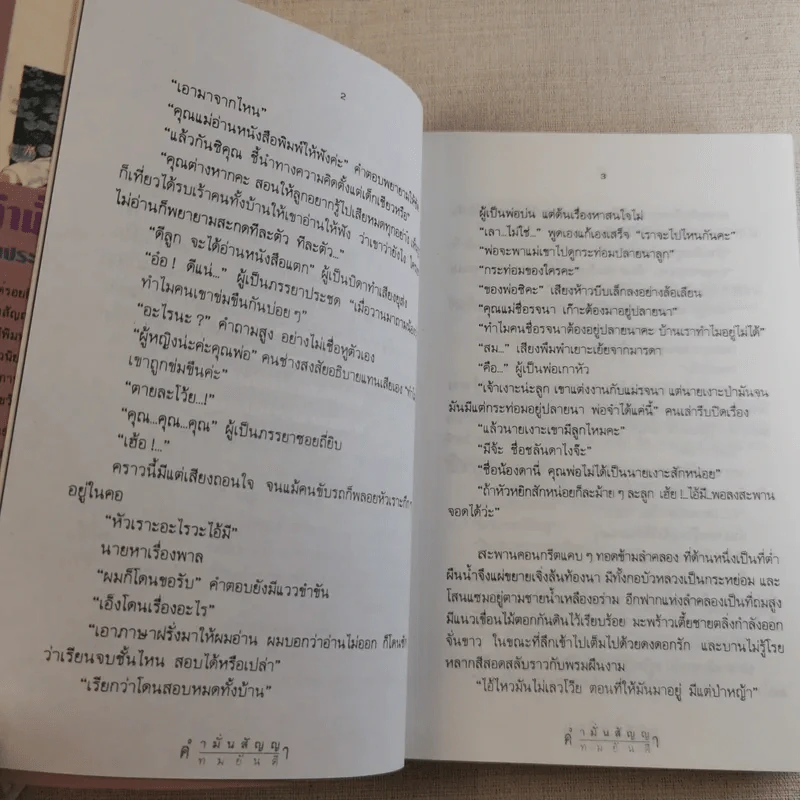 2
“เอามาจากไหน”
“คุณแม่อ่านหนังสือพิมพ์ให้ฟังค่ะ” คำตอบพยายาม
“แล้วกันซิคุณ ชี้นำทางความคิดตั้งแต่เด็กเชียวหรือ”
“คุณต่างหากคะ สอนให้ลูกอยากรู้ไปเสียหมดทุกอย่าง
ก็เที่ยวได้รบเร้าคนทั้งบ้านให้เขาอ่านให้ฟัง ว่าเขาว่ายังไง
ไม่อ่านก็พยายามสะกดทีละตัว ทีละตัว...”
“ดีลูก จะได้อ่านหนังสือแตก” ผู้เป็นบิดาทำเสียงยุส่ง
“อ๋อ ! ดีแน่...” ผู้เป็นภรรยาประชด “เมื่อวานมาถาม
ทำไมคนเขาข่มขืนกันบ่อย ๆ”
“อะไรนะ ?” คำถามสูง อย่างไม่เชื่อหูตัวเอง
“ผู้หญิงน่ะค่ะคุณพ่อ” คนช่างสงสัยอธิบายแทนเสียเอง
เขาถูกข่มขืนค่ะ”
“ตายละโว้ย...!”
“คุณ...คุณ...คุณ” ผู้เป็นภรรยาซอยถี่ยิบ
“เฮ้อ !...”
คราวนี้มีแต่เสียงถอนใจ จนแม้คนขับรถก็พลอยหัวเราะ
อยู่ในคอ
“หัวเราะอะไรวะไอ้มี”
นายหาเรื่องพาล
“ผมก็โดนขอรับ” คำตอบยังมีแววขำขัน
“เอ็งโดนเรื่องอะไร”
“เอาภาษาฝรั่งมาให้ผมอ่าน ผมบอกว่าอ่านไม่ออก ก็โดน
ว่าเรียนจบชั้นไหน สอบได้หรือเปล่า”
“เรียกว่าโดนสอบหมดทั้งบ้าน”
คำมั่นสัญญา
ทมยันตี
3
ผู้เป็นพ่อบ่น แต่ต้นเรื่องหาสนใจไม่
“เลา...ไม่ใช่...” พูดเองแก้เองเสร็จ “เราจะไปไหนกันคะ”
“พ่อจะพาแม่เขาไปดูกระท่อมปลายนาลูก”
“กระท่อมของใครคะ”
“ของพ่อซิคะ” เสียงห้าวบีบเล็กลงอย่างล้อเลียน
“คุณแม่ชื่อรจนา เก๊าะต้องมาอยู่ปลายนา”
“ทำไมคนชื่อรจนาต้องอยู่ปลายนาคะ บ้านเราทำไมอยู่ไม่ได้”
“สม...” เสียงพึมพำเยาะเย้ยจากมารดา
“คือ...” ผู้เป็นพ่อเกาหัว
“เจ้าเงาะน่ะลูก เขาแต่งงานกับแม่รจนา แต่นายเงาะป่ามันจน
มันมีแต่กระท่อมอยู่ปลายนา พ่อจำได้แค่นี้” คนเล่ารีบปิดเรื่อง
“แล้วนายเงาะเขามีลูกไหมคะ”
“มีจ้ะ ชื่อชลันดาไงจ๊ะ”
“ชื่อน้องดานี่ คุณพ่อไม่ได้เป็นนายเงาะสักหน่อย”
“ถ้าหัวหยิกสักหน่อยก็ละม้าย ๆ ละลูก เฮ้ย !...ไอ้มี..พอลงสะพาน
จอดได้ว่ะ”
สะพานคอนกรีตแคบ ๆ ทอดข้ามลำคลอง ที่ด้านหนึ่งเป็นที่ต่ำ
ผืนน้ำจึงแผ่ขยายเจิ่งล้นท้องนา มีทั้งกอบัวหลวงเป็นกระหย่อม และ
โสนแซมอยู่ตามชายน้ำเหลืองอร่าม อีกฟากแห่งลำคลองเป็นที่ถมสูง
มีแนวเขื่อนไม้ตอกกันดินไว้เรียบร้อย มะพร้าวเตี้ยชายตลิ่งกำลังออก
จั่นขาว ในขณะที่ลึกเข้าไปเต็มไปด้วยดงดอกรัก และบานไม่รู้โรย
หลากสีสอดสลับราวกับพรมผืนงาม
“ไอ้ไหวมันไม่เลวโว้ย ตอนที่ให้มันมาอยู่ มีแต่ป่าหญ้า”
คำมั่นสัญญา
ทมยันตี